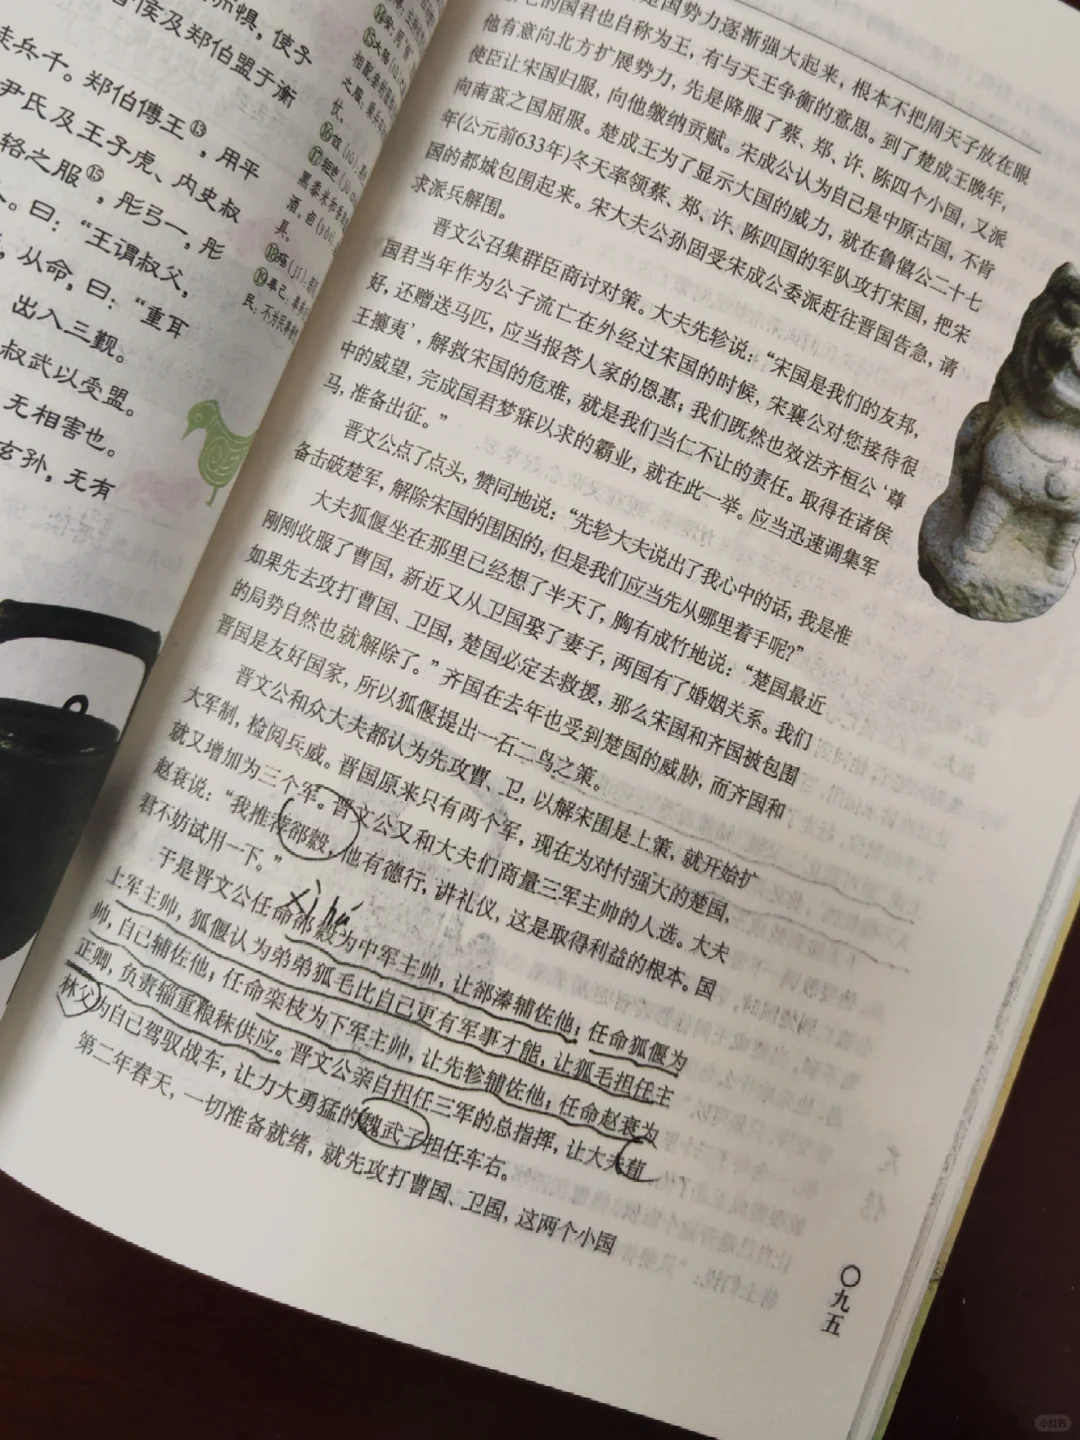 不惧，使子
侯及郑伯盟于衡
徒兵千。郑伯傅王⑬，用平
尹氏及王子虎、内史叔
辂之服⑮，彤弓一，彤
人。曰：“王谓叔父，
，从命，曰：“重耳
出入三觐。
叔武以受盟。
无相害也。
玄孙，无有
国势力逐渐强大起来，根本不把周天子放在眼
的国君也自称为王，有与天王争衡的意思。到了楚成王晚年，
他有意向北方扩展势力，先是降服了蔡、郑、许、陈四个小国，又派
使臣让宋国归服，向他缴纳贡赋。宋成公认为自己是中原古国，不肯
向南蛮之国屈服。楚成王为了显示大国的威力，就在鲁僖公二十七
年(公元前633年)冬天率领蔡、郑、许、陈四国的军队攻打宋国，把宋
国的都城包围起来。宋大夫公孙固受宋成公委派赶往晋国告急，请
求派兵解围。
晋文公召集群臣商讨对策。大夫先轸说：“宋国是我们的友邦，
国君当年作为公子流亡在外经过宋国的时候，宋襄公对您接待很
好，还赠送马匹，应当报答人家的恩惠；我们既然也效法齐桓公‘尊
王攘夷’，解救宋国的危难，就是我们当仁不让的责任。取得在诸侯
中的威望，完成国君梦寐以求的霸业，就在此一举。应当迅速调集军
马，准备出征。”
晋文公点了点头，赞同地说：“先轸大夫说出了我心中的话，我是准
备击破楚军，解除宋国的围困的，但是我们应当先从哪里着手呢？”
大夫狐偃坐在那里已经想了半天了，胸有成竹地说：“楚国最近
刚刚收服了曹国，新近又从卫国娶了妻子，两国有了婚姻关系。我们
如果先去攻打曹国、卫国，楚国必定去救援，那么宋国和齐国被包围
的局势自然也就解除了。”齐国在去年也受到楚国的威胁，而齐国和
晋国是友好国家，所以狐偃提出一石二鸟之策。
晋文公和众大夫都认为先攻曹、卫，以解宋围是上策，就开始扩
大军制，检阅兵威。晋国原来只有两个军，现在为对付强大的楚国，
就又增加为三个军。晋文公又和大夫们商量三军主帅的人选。大夫
赵衰说：“我推荐郤縠，他有德行，讲礼仪，这是取得利益的根本。国
君不妨试用一下。”
xì hú
于是晋文公任命郤縠为中军主帅，让郤溱辅佐他；任命狐偃为
上军主帅，狐偃认为弟弟狐毛比自己更有军事才能，让狐毛担任主
帅，自己辅佐他；任命栾枝为下军主帅，让先轸辅佐他；任命赵衰为
正卿，负责辎重粮秣供应。晋文公亲自担任三军的总指挥，让大夫荀
林父为自己驾驭战车，让力大勇猛的魏武子担任车右。
第二年春天，一切准备就绪，就先攻打曹国、卫国，这两个小国
〇九五
小红书